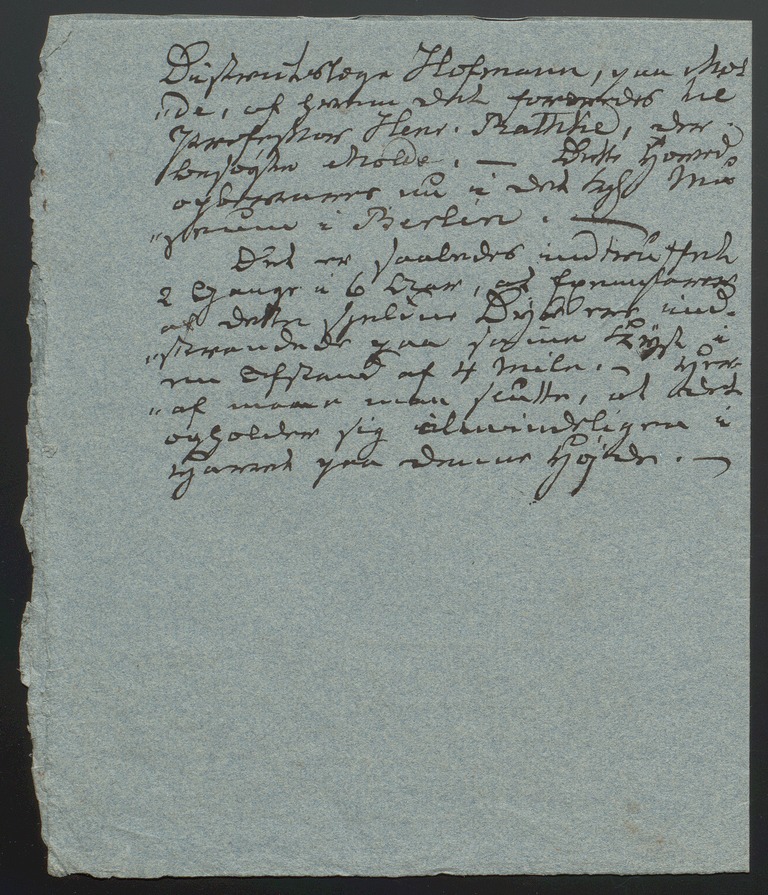 Districtslæge Hofmann, paa Mol
"de, af hvem det foræredes til
Professor Henr. Rathke, der
besøgte Molde. — Dette Hoved
opbevares nu i det kgl. Mu
"seum i Berlin. —
Det er saaledes indtruffet
2 Gange i 6 Aar, at Exemplarer
af dette sjeldne Dyr ere ind-
"strandede paa samme Kyst i
en Afstand af 4 Mile. – Her-
"af maae man slutte, at det
opholder sig almindeligen i
Havet paa denne Høide. —